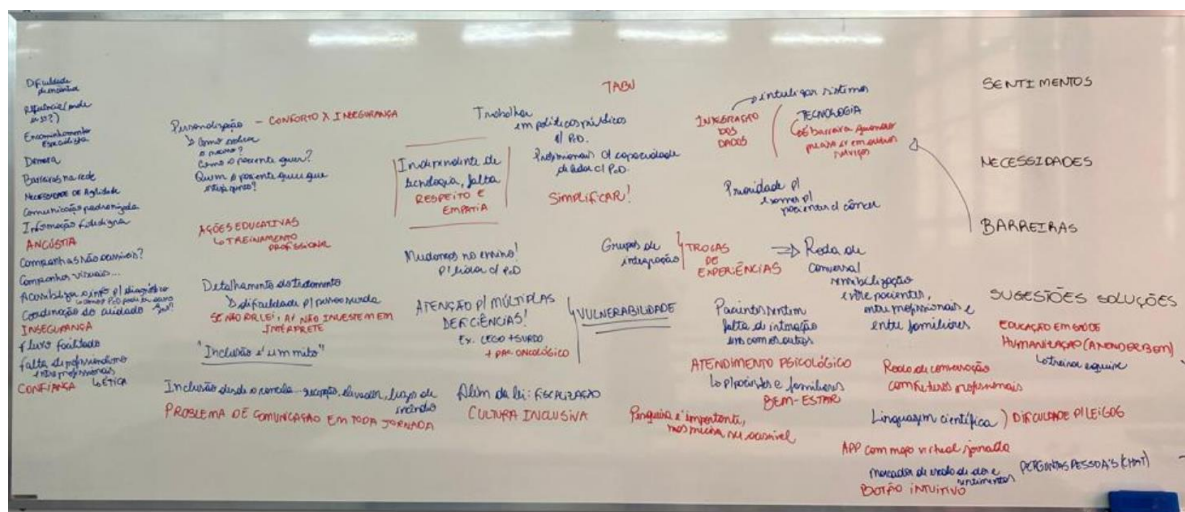 Dificuldade
Demora
Barreiras na rede
NECESSIDADE DE Agilidade
Comunicação padronizada
Informação fidedigna
ANGÚSTIA
Campanhas não acessíveis?
Campanhas visuais...
Acessibilizar a info p/ diagnóstico
Coordenação do cuidado
INSEGURANÇA
Fluxo facilitado
falta de profissionalismo
entre profissionais
CONFIANÇA ↳ ÉTICA
Personalização - CONFORTO X INSEGURANÇA
↳ Como
Como o paciente quer?
Quem o paciente quer que
AÇÕES EDUCATIVAS
↳ TREINAMENTO
PROFISSIONAL
Detalhamento do tratamento
↳ dificuldade p/ pessoa surda
SE NÃO DÁ LEI, AÍ NÃO INVESTEM EM
INTÉRPRETE
"Inclusão é um mito"
Inclusão desde o - recepção, elevador,
PROBLEMA DE COMUNICAÇÃO EM TODA JORNADA
Independente de
tecnologia, falta
RESPEITO E
EMPATIA
Mudanças no ensino!
p/ lidar c/ PcD
ATENÇÃO P/ MÚLTIPLAS
DEFICIÊNCIAS!
Ex. CEGO + SURDO
+ PAC. ONCOLÓGICO
Além da lei: FISCALIZAÇÃO
CULTURA INCLUSIVA
TABU
Trabalhar
em políticas públicas
p/ PcD.
Profissionais c/ capacidade
de lidar c/ PcD.
SIMPLIFICAR!
Grupos de
integração
TROCAS
DE
EXPERIÊNCIAS
VULNERABILIDADE
INTEGRAÇÃO
DOS
DADOS
→ interligar sistemas
TECNOLOGIA
é barreira quando
em outros
serviços
Prioridade p/
exames p/
pacientes c/ câncer
⇒ Roda de
conversa/
sensibilização
entre pacientes,
entre profissionais e
entre familiares
Pacientes sentem
falta de interação
uns com os outros
ATENDIMENTO PSICOLÓGICO
↳ p/ pacientes e familiares
BEM-ESTAR
Pesquisa é importante,
mas precisa ser acessível
Roda de conversação
com futuros profissionais
Linguagem científica ) DIFICULDADE P/ LEIGOS
APP com mapa virtual jornada
marcador de escala de dor e
sentimentos
PERGUNTAS PESSOAIS (CHAT)
BOTÃO INTUITIVO
SENTIMENTOS
NECESSIDADES
BARREIRAS
SUGESTÕES SOLUÇÕES
EDUCAÇÃO EM SAÚDE
HUMANIZAÇÃO
↳ treinar equipe